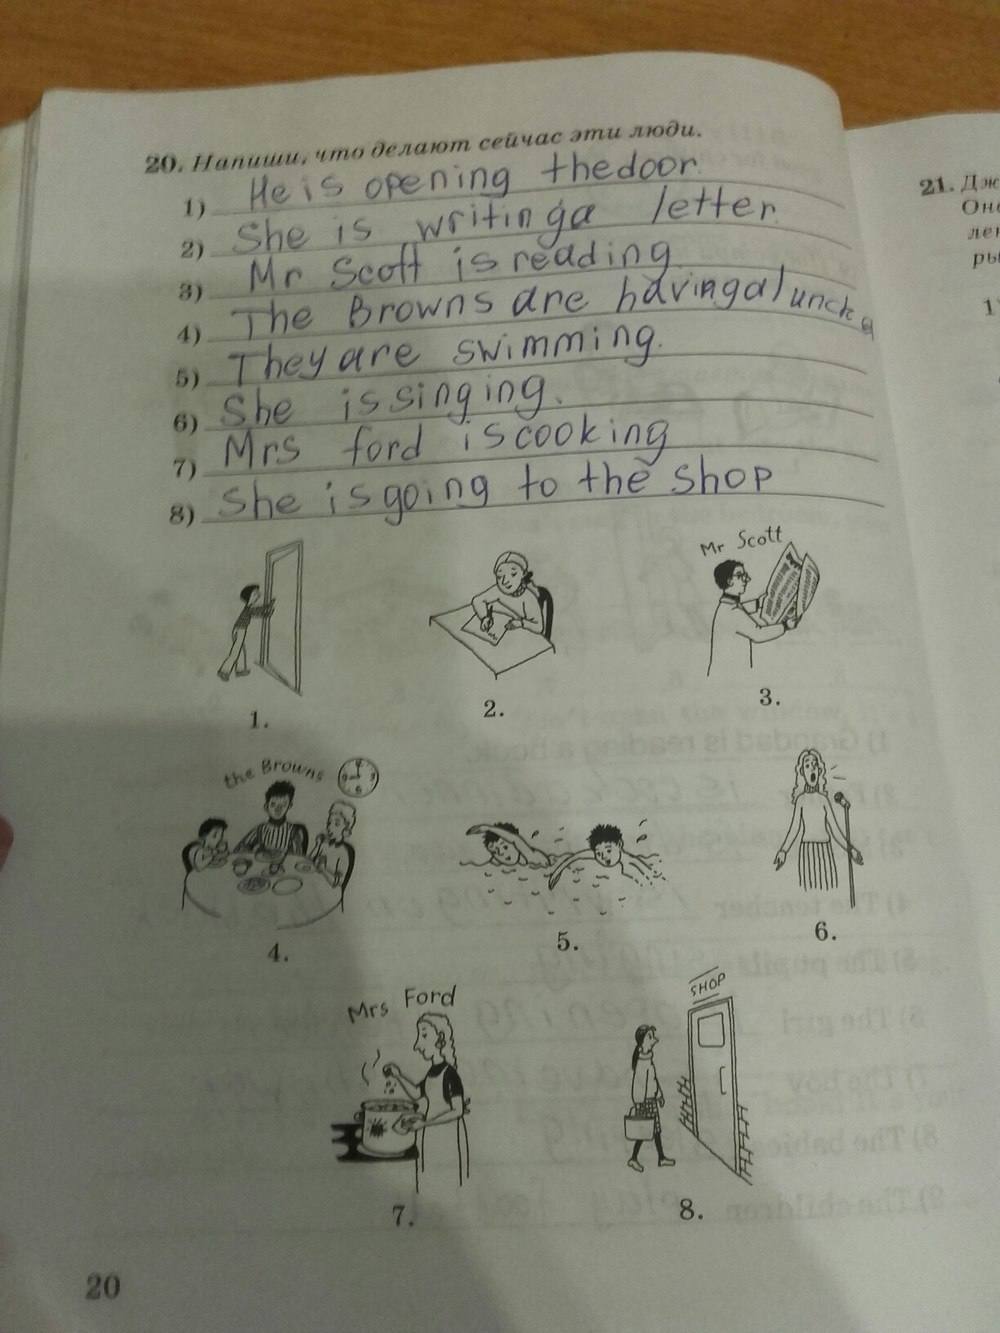 20. Напиши, что делают сейчас эти люди.
1) He is opening thedoor.
2) She is writinga letter.
3) Mr Scott is reading
4) The Browns are havingalunch
5) They are swimming.
6) She is singing.
7) Mrs ford is cooking
8) She is going to the shop
Mr Scott
1. 2. 3.
the Browns
4. 5. 6.
Mrs Ford
SHOP
7. 8.
20
21. Дж
Он
ле
ры
1